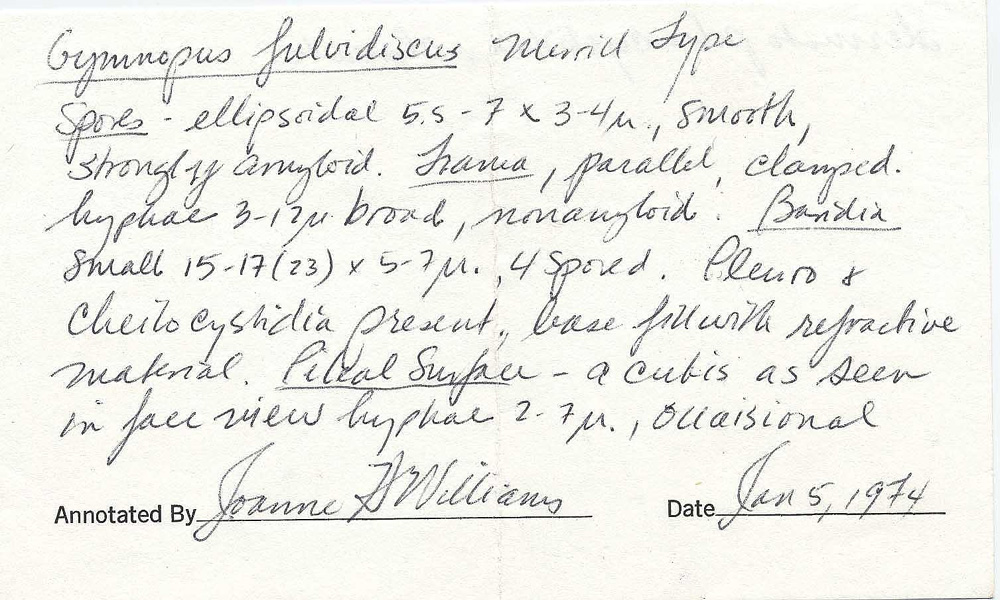 Gymnopus fulvidiscus Murrill Type
Spores - ellipsoidal 5.5 - 7 x 3-4µ., smooth,
strongly amyloid. Trama, parallel, clamped.
hyphae 3-12µ broad, nonamyloid. Basidia
small 15-17(23) x 5-7µ., 4 spored. Pleuro &
Cheilocystidia present, base fill with refractive
material. Pileal Surface - a cutis as seen
in face view hyphae 2-7µ., occaisional
Annotated By Joanne Williams Date Jan 5, 1974